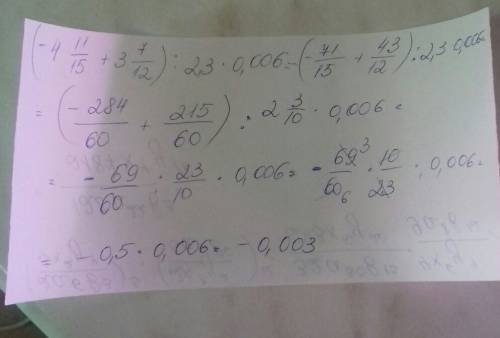 (-4 11/15 + 3 7/12) : 2,3 · 0,006 = (-71/15 + 43/12) : 2,3 · 0,006
= (-284/60 + 215/60) : 2 3/10 · 0,006 =
= -69/60 : 23/10 · 0,006 = -69³/60₆ · 10/23 · 0,006 =
= -0,5 · 0,006 = -0,003